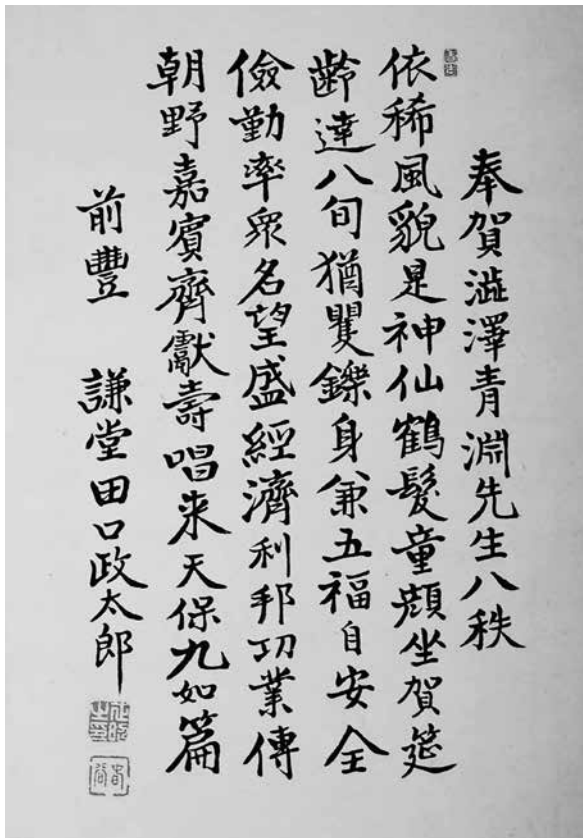 奉賀澁澤青淵先生八秩
依稀風貌是神仙鶴髮童顔坐賀筵
齡達八旬猶矍鑠身兼五福自安全
儉勤率衆名望盛經濟利邦功業傳
朝野嘉賓齊獻壽唱来天保九如篇
前豐　謙堂田口政太郎